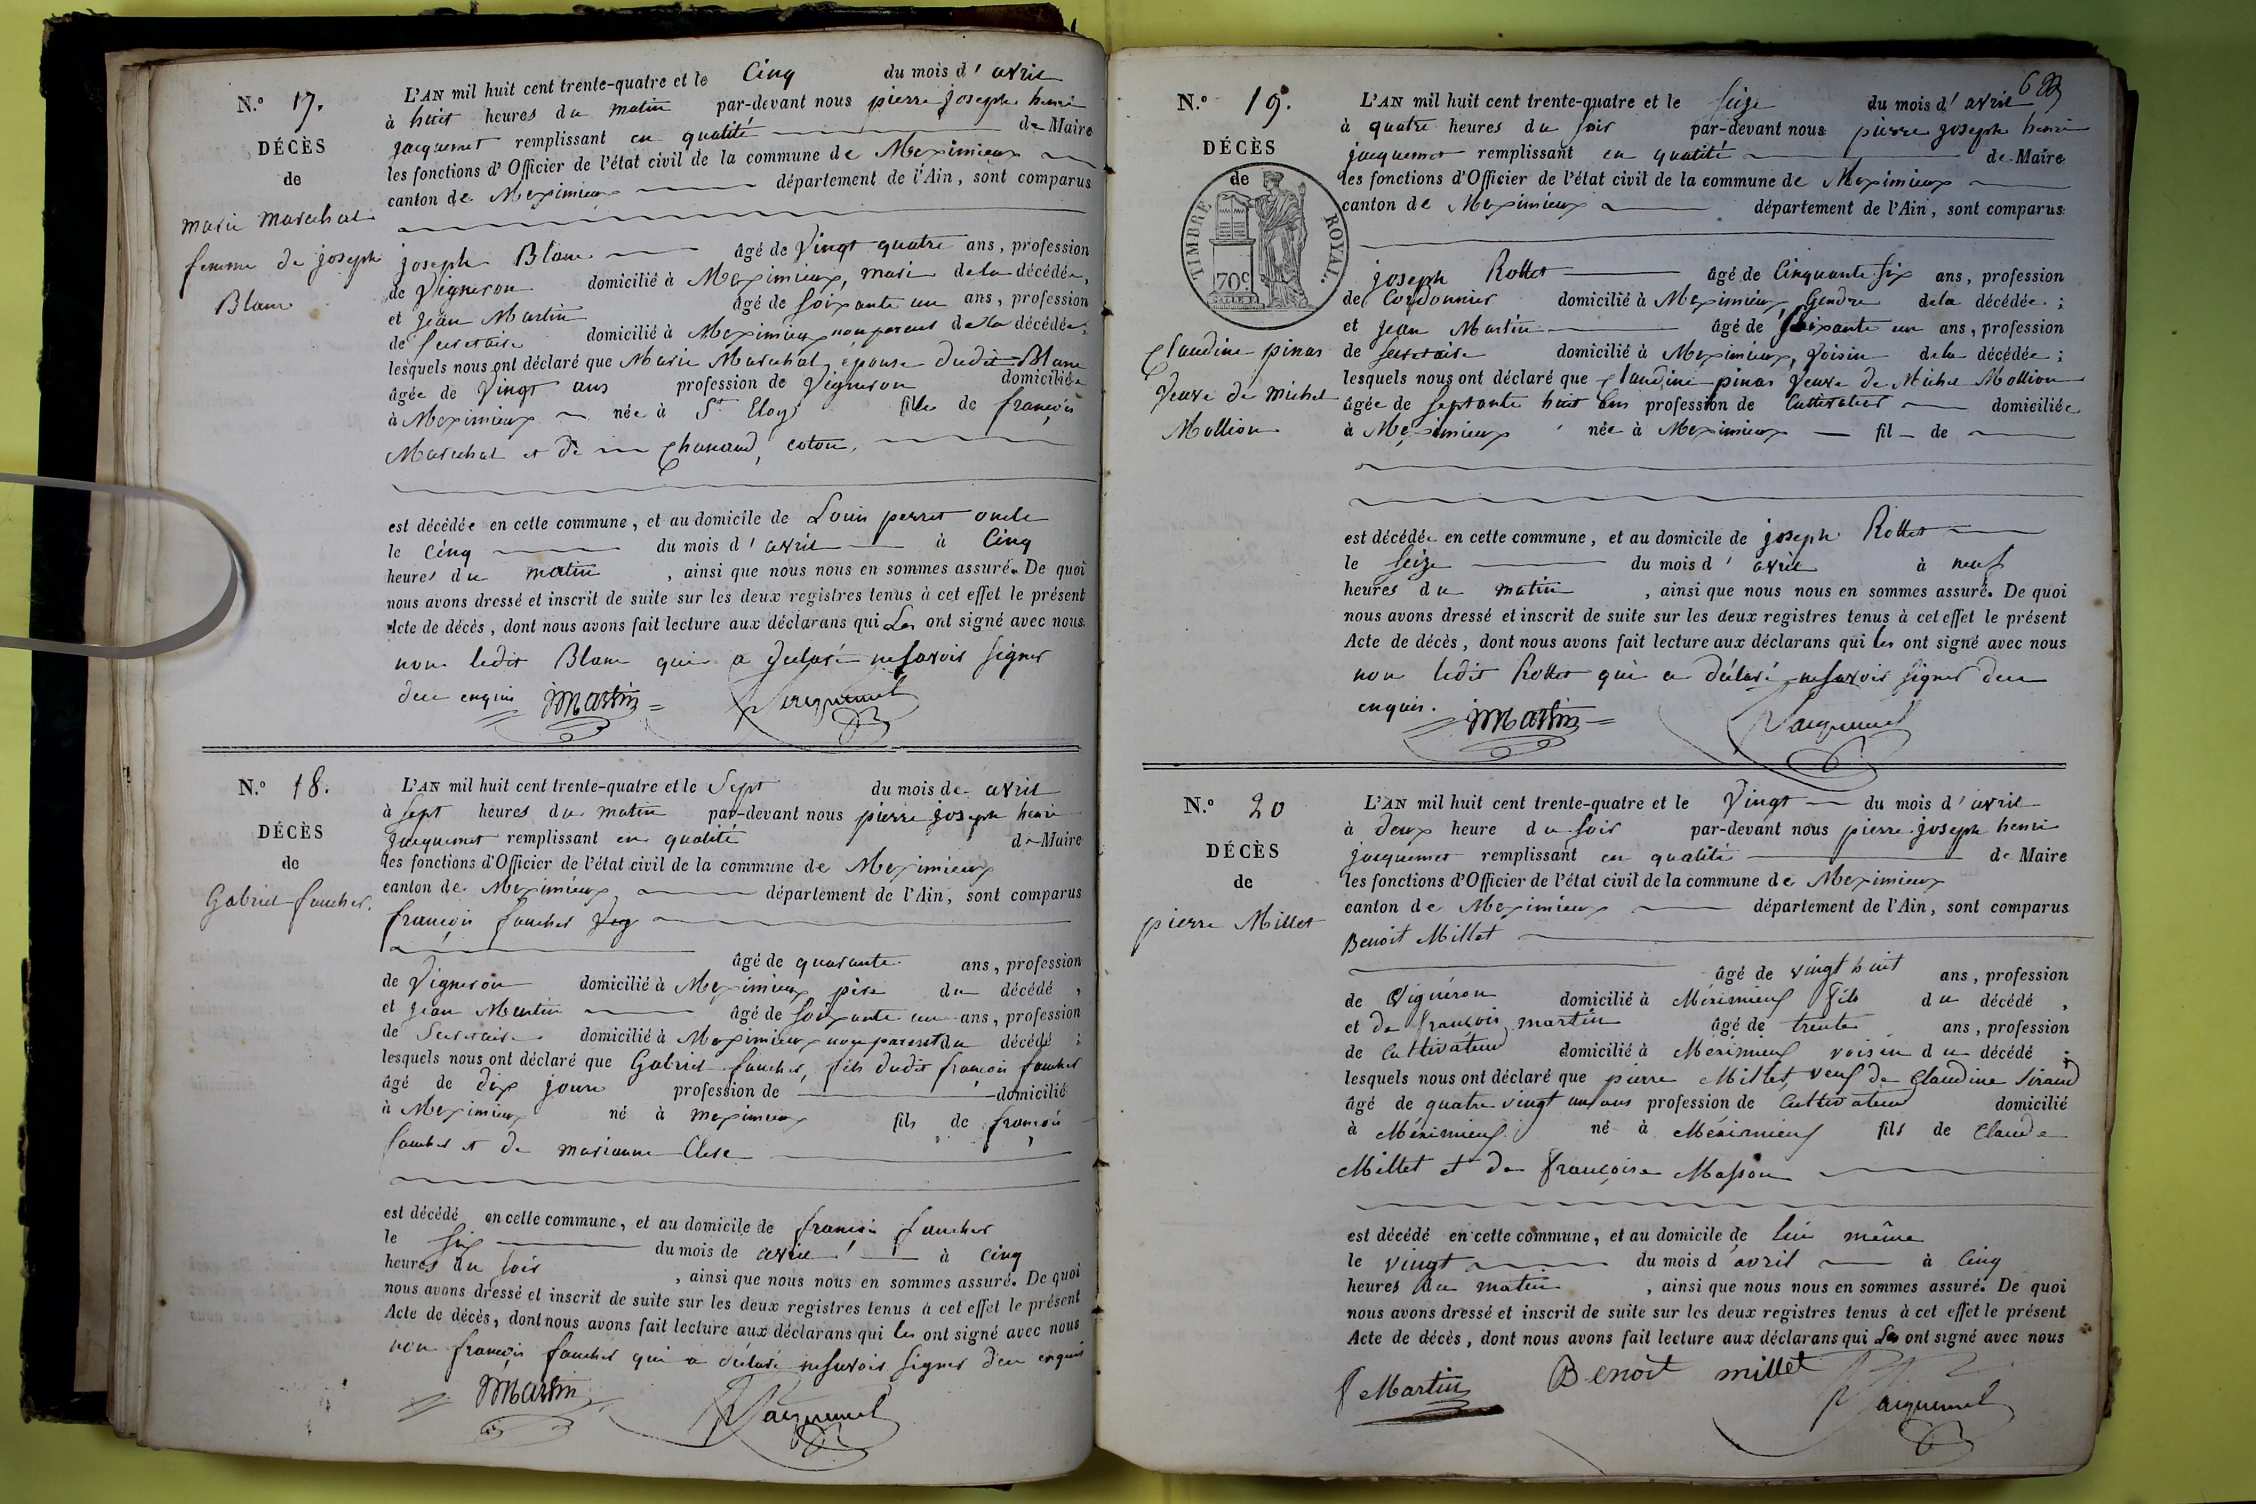 N.° 17.
DÉCÈS
de
Marie Marechal
femme de joseph
Blanc
L'AN mil huit cent trente-quatre et le Cinq du mois d' avril
à huit heures du matin par-devant nous pierre joseph henri
jacquemet remplissant en qualité de Maire
les fonctions d'Officier de l'état civil de la commune de Meximieux
canton de Meximieux département de l'Ain, sont comparus
joseph Blanc âgé de Vingt quatre ans, profession
de Vigneron domicilié à Meximieux, mari de la décédée,
et jean Martin âgé de soixante un ans, profession
de secretaire domicilié à Meximieux non parent de la décédée;
lesquels nous ont déclaré que Marie Marechal, épouse dudit Blanc
âgée de Vingt ans profession de Vigneron domiciliée
à Meximieux née à St Eloys fille de françois
Marechal et de Chanaud, coton,
est décédée en cette commune, et au domicile de Louis perret oncle
le cinq du mois d' avril à Cinq
heures du matin, ainsi que nous nous en sommes assuré. De quoi
nous avons dressé et inscrit de suite sur les deux registres tenus à cet effet le présent
Acte de décès, dont nous avons fait lecture aux déclarans qui Les ont signé avec nous
non ledit Blanc qui a déclaré ne savoir signer
den enquis JMartin Jacquemet
N.° 18.
DÉCÈS
de
Gabriel faucher.
L'AN mil huit cent trente-quatre et le Sept du mois de avril
à sept heures du matin par-devant nous pierre joseph henri
jacquemet remplissant en qualité de Maire
les fonctions d'Officier de l'état civil de la commune de Meximieux
canton de Meximieux département de l'Ain, sont comparus
françois faucher
âgé de quarante ans, profession
de Vigneron domicilié à Meximieux père du décédé,
et jean Martin âgé de soixante un ans, profession
de Secretaire domicilié à Meximieux non parent du décédé;
lesquels nous ont déclaré que Gabriel faucher, fils dudit françois faucher
âgé de dix jours profession de domicilié
à Meximieux né à meximieux fils de françois
faucher et de marianne Clere
est décédé en cette commune, et au domicile de francois faucher
le six du mois de avril à cinq
heures du soir, ainsi que nous nous en sommes assuré. De quoi
nous avons dressé et inscrit de suite sur les deux registres tenus à cet effet le présent
Acte de décès, dont nous avons fait lecture aux déclarans qui les ont signé avec nous
non françois faucher qui a déclaré ne savoir signer d'en enquis
JMartin Jacquemet
N.° 19.
DÉCÈS
de
TIMBRE ROYAL.
70c
Claudine pinas
Veuve de Michel
Mollion
L'AN mil huit cent trente-quatre et le seize du mois d' avril
à quatre heures du soir par-devant nous pierre joseph henri
jacquemet remplissant en qualité de Maire
les fonctions d'Officier de l'état civil de la commune de Meximieux
canton de Meximieux département de l'Ain, sont comparus
joseph Rollet âgé de Cinquante six ans, profession
de Cordonnier domicilié à Meximieux, Gendre de la décédée;
et jean Martin âgé de soixante un ans, profession
de secretaire domicilié à Meximieux, Voisin de la décédée;
lesquels nous ont déclaré que Claudine pinas Veuve de Michel Mollion
âgée de septante huit ans profession de Cultivateur domiciliée
à Meximieux née à Meximieux fil de
est décédée en cette commune, et au domicile de joseph Rollet
le seize du mois d' avril à neuf
heures du matin, ainsi que nous nous en sommes assuré. De quoi
nous avons dressé et inscrit de suite sur les deux registres tenus à cet effet le présent
Acte de décès, dont nous avons fait lecture aux déclarans qui les ont signé avec nous
non ledit Rollet qui a déclaré ne savoir signer den
enquis. JMartin Jacquemet
N.° 20
DÉCÈS
de
pierre Millet
L'AN mil huit cent trente-quatre et le Vingt du mois d' avril
à deux heure du soir par-devant nous pierre joseph henri
jacquemet remplissant en qualité de Maire
les fonctions d'Officier de l'état civil de la commune de Meximieux
canton de Meximieux département de l'Ain, sont comparus
Benoit Millet
âgé de vingt huit ans, profession
de Vigneron domicilié à Méximieux fils du décédé,
et de françois martin âgé de trente ans, profession
de Cultivateur domicilié à Méximieux voisin du décédé;
lesquels nous ont déclaré que pierre Millet, veuf de Claudine Siraud
âgé de quatre vingt un ans profession de Cultivateur domicilié
à Méximieux né à Méximieux fils de Claude
Millet et de françoise Masson
est décédé en cette commune, et au domicile de lui même
le vingt du mois d' avril à Cinq
heures du matin, ainsi que nous nous en sommes assuré. De quoi
nous avons dressé et inscrit de suite sur les deux registres tenus à cet effet le présent
Acte de décès, dont nous avons fait lecture aux déclarans qui Les ont signé avec nous
f Martin Benoit millet Jacquemet